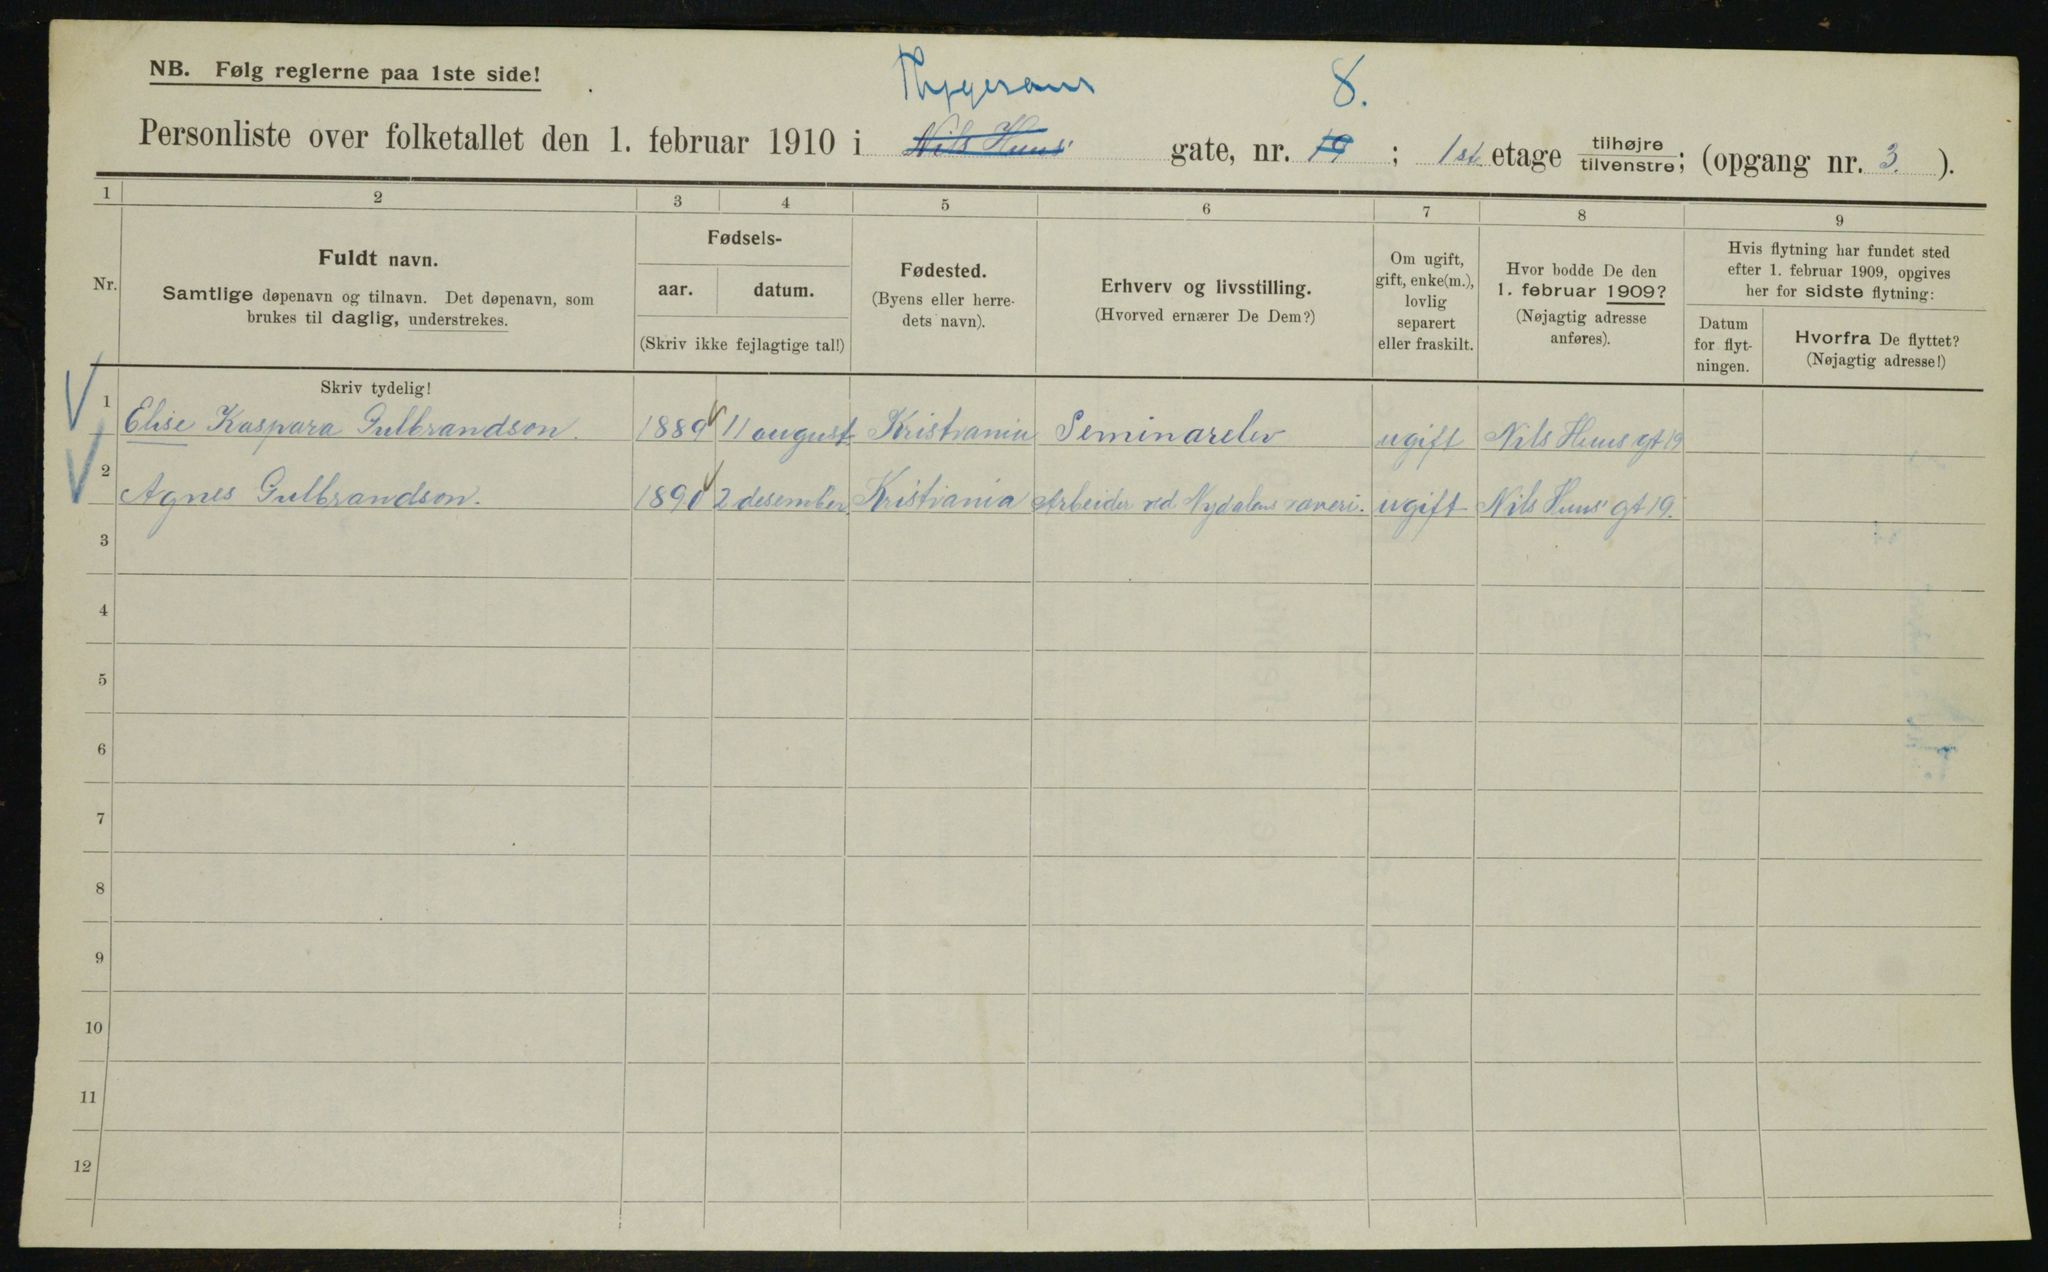 NB. Følg reglerne paa 1ste side!
8.
Personliste over folketallet den 1. februar 1910 i Nils Huus' gate, nr. 19; 1st etage tilhøjre tilvenstre; (opgang nr. 3.).
1 2 3 4 5 6 7 8 9
Nr.
Fuldt navn.
Samtlige døpenavn og tilnavn. Det døpenavn, som
brukes til daglig, understrekes.
Skriv tydelig!
Fødsels-
aar. datum.
(Skriv ikke fejlagtige tal!)
Fødested.
(Byens eller herre-
dets navn).
Erhverv og livsstilling.
(Hvorved ernærer De Dem?)
Om ugift,
gift, enke(m.),
lovlig
separert
eller fraskilt.
Hvor bodde De den
1. februar 1909?
(Nøjagtig adresse
anføres).
Hvis flytning har fundet sted
efter 1. februar 1909, opgives
her for sidste flytning:
Datum
for flyt-
ningen.
Hvorfra De flyttet?
(Nøjagtig adresse!)
1 Elise Kaspara Gulbrandson. 1889 11 august Kristiania Seminarelev ugift Nils Huus gt 19
2 Agnes Gulbrandson. 1890 2 desember Kristiania Arbeider ved Nydalens væveri. ugift Nils Huus' gt 19.
3
4
5
6
7
8
9
10
11
12